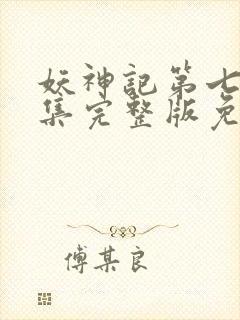 妖神記第七
集完整版免
傅某良